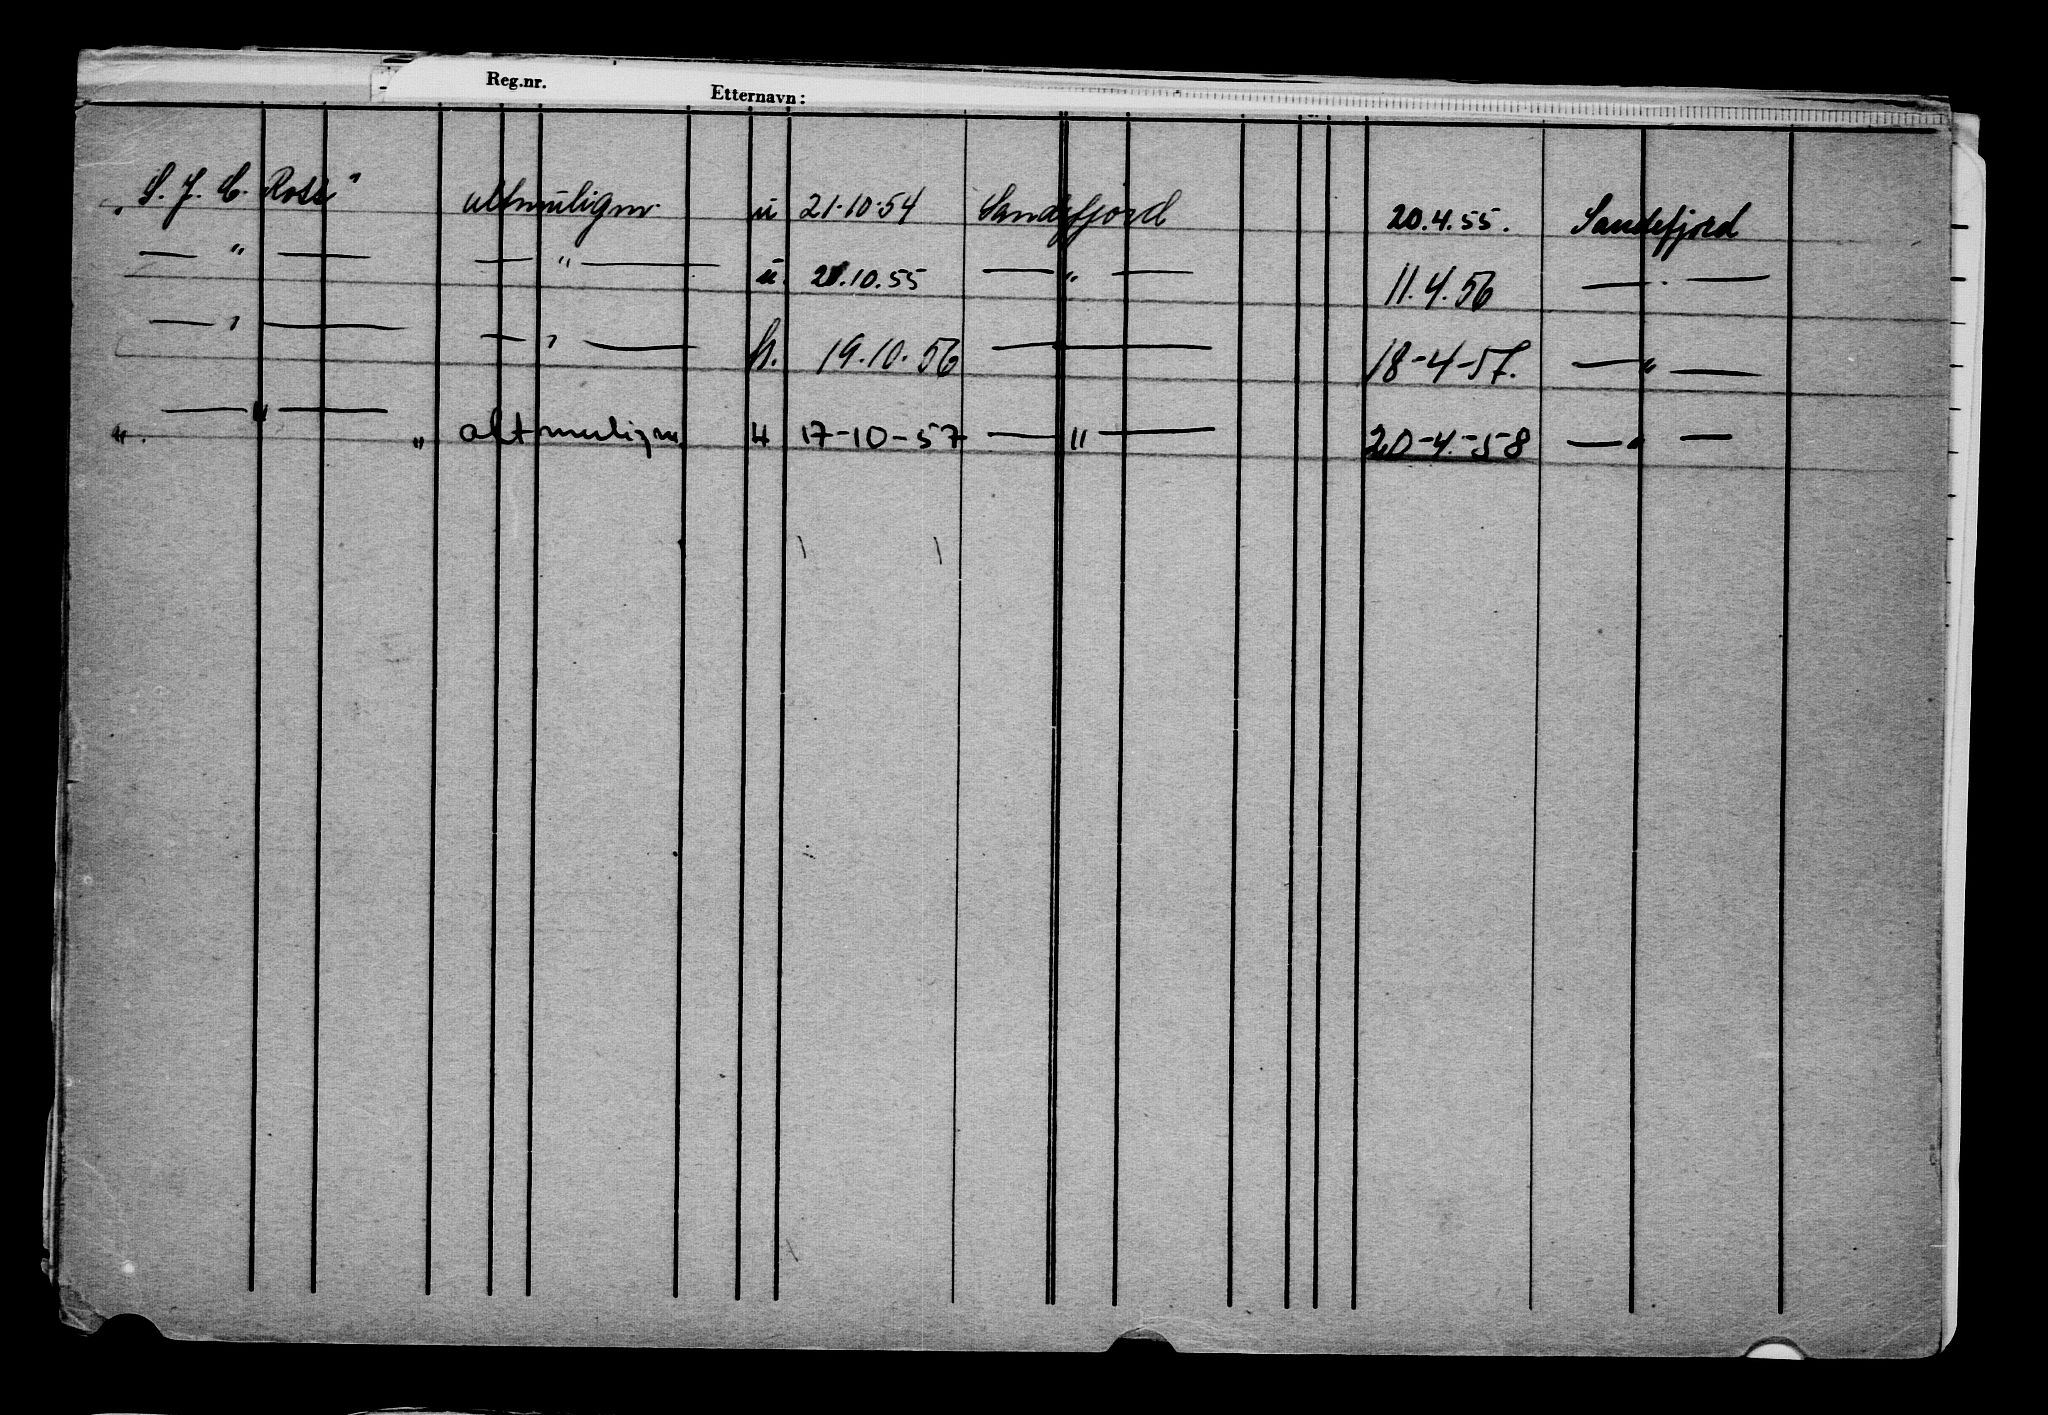 Reg.nr. Etternavn:
„S. J. C. Ross" altmuligm. u 21.10.54 Sandefjord 20.4.55. Sandefjord
— " — — " — u. 21.10.55 — " — 11.4.56 — " —
— " — — " — h. 19.10.56 — — 18-4-57. — " —
" — " — " altmuligm 4 17-10-57 — " — 20-4-58 — " —